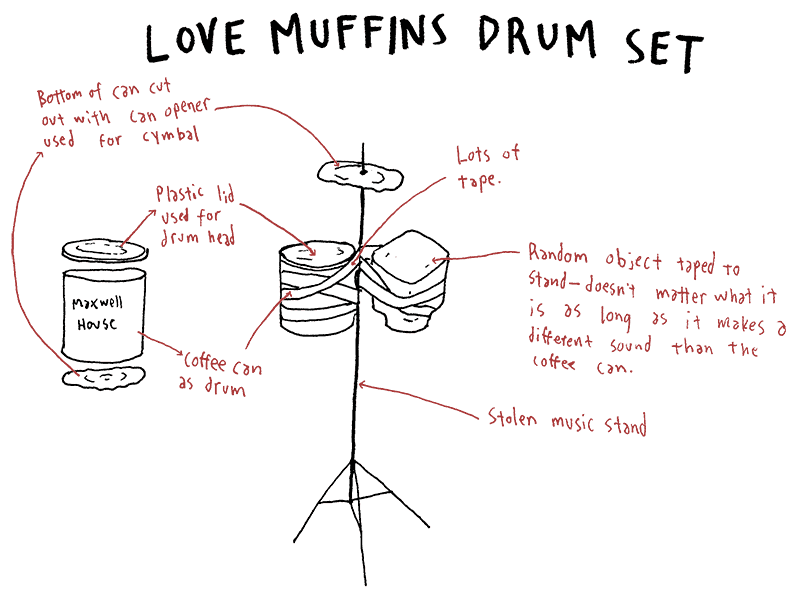 LOVE MUFFINS DRUM SET
Bottom of can cut
out with can opener
used for cymbal
Lots of
tape.
Plastic lid
used for
drum head
Random object taped to
stand—doesn't matter what it
is as long as it makes a
different sound than the
coffee can.
Maxwell
House
Coffee can
as drum
Stolen music stand